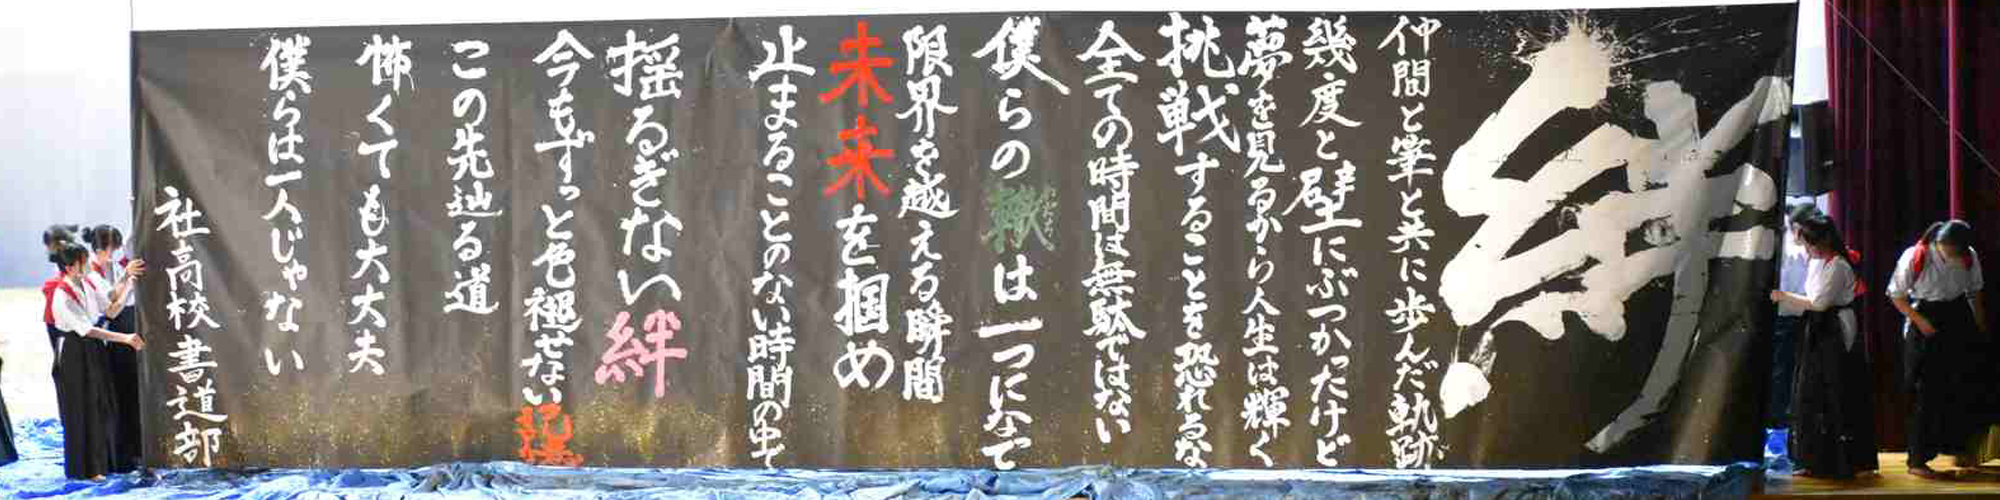 絆
仲間と筆と共に歩んだ軌跡
幾度と壁にぶつかったけど
夢を見るから人生は輝く
挑戦することを恐れるな
全ての時間は無駄ではない
僕らの轍は一つになって
わだち
限界を越える瞬間
未来を掴め
止まることのない時間の中で
揺るぎない絆
今もずっと色褪せない記憶
この先辿る道
怖くても大丈夫
僕らは一人じゃない
社高校書道部